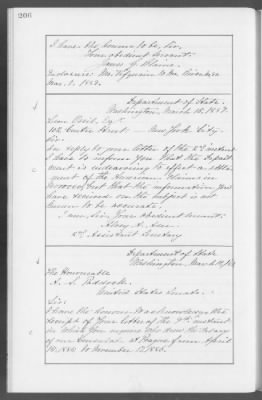 206
I have the honor to be, Sir,
Your obedient servant,
James G. Blaine.
Enclosure: Mr. to Mr.
Mar. 2, 1889.
Department of State,
Washington, March 15, 1889.
Esqr.
102 Centre Street New York City.
Sir:
In reply to your letter of the instant
I have to inform you that the Depart-
ment is endeavoring to effect a settle-
ment of the American claims in
but that the information you
have received on the subject is not
known to be accurate.
I am, Sir, Your obedient servant,
Alvey A. Adee.
2nd Assistant Secretary
Department of State
Washington, March
The Honorable
A. S. Paddock,
United States Senate.
Sir:
I have the honor to acknowledge the
receipt of your letter of the 9th instant
in which you inquire who drew the salary
of our Consulate at Prague from April
10, 1886 to November 15, 1886.